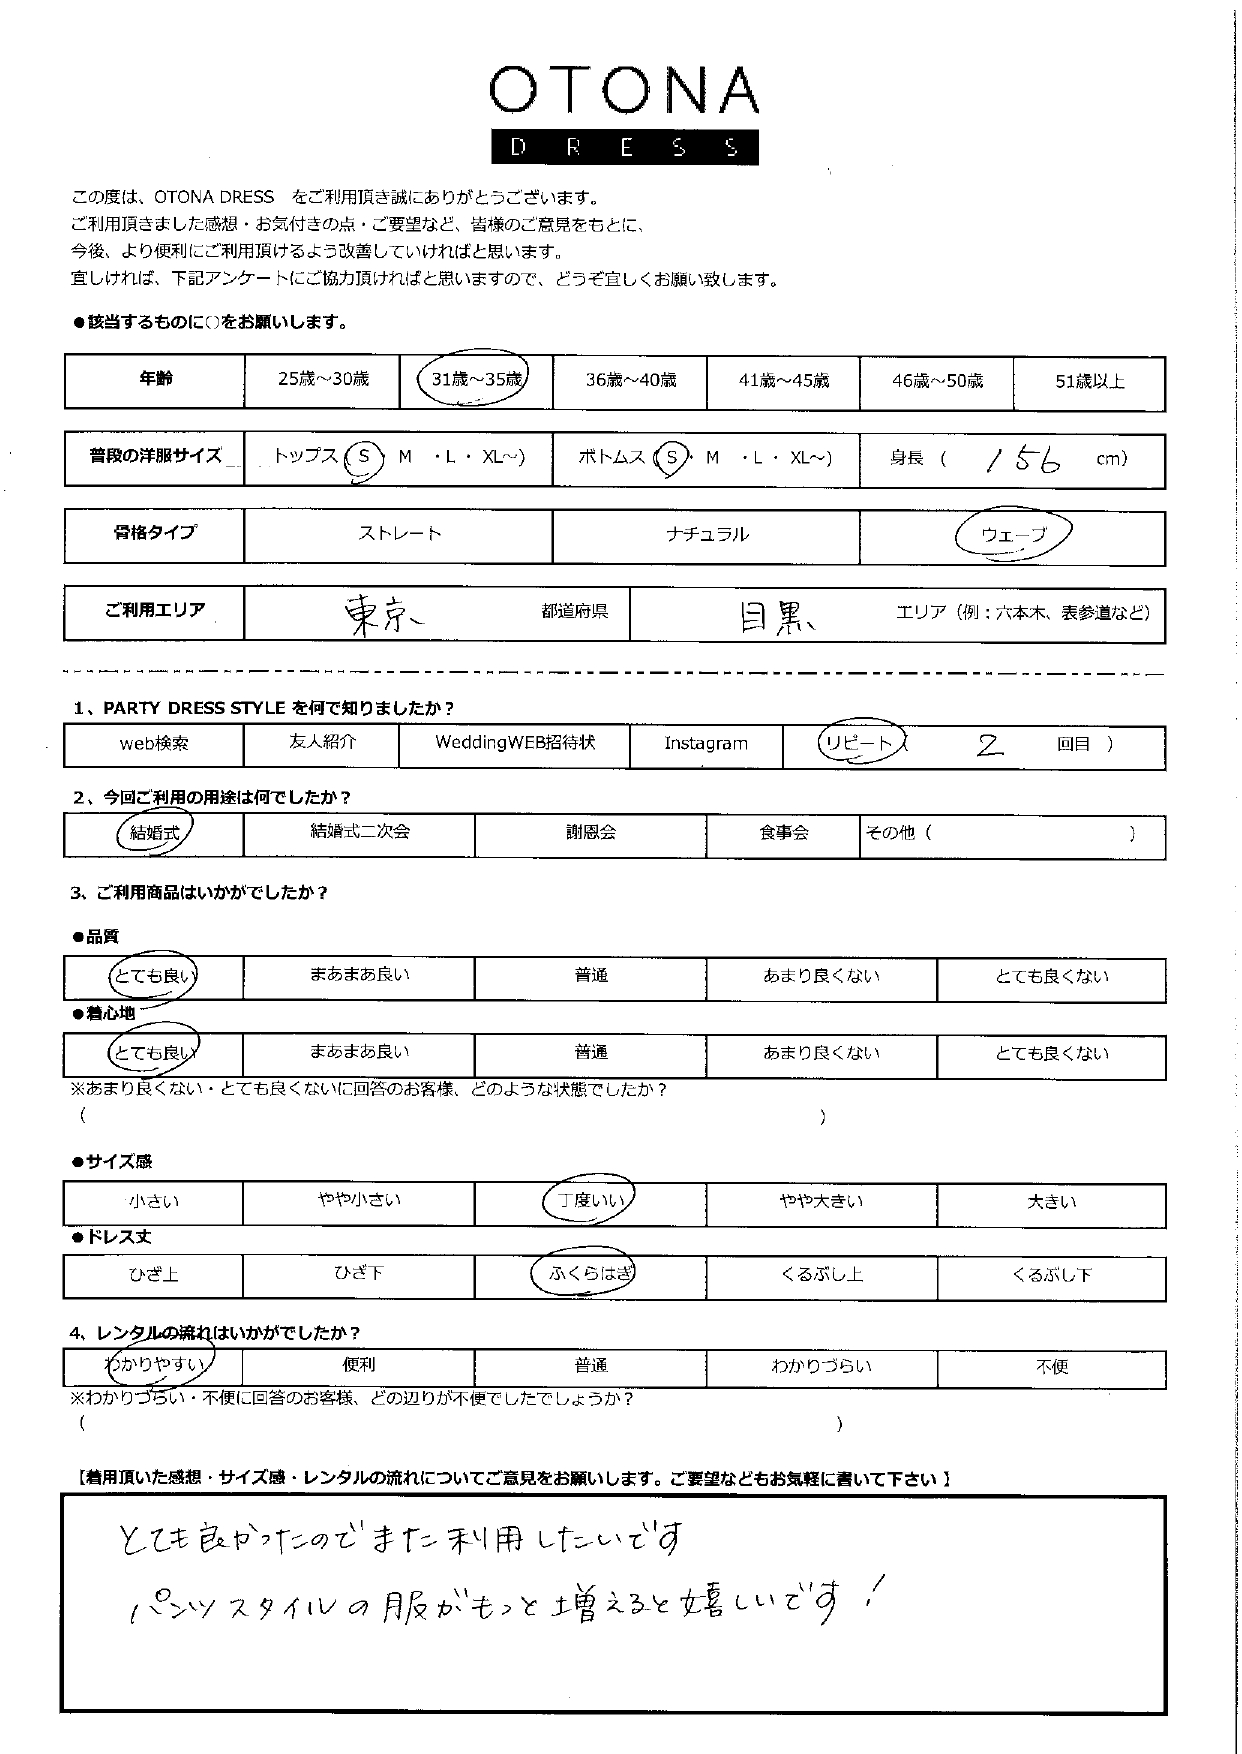 OTONA
DRESS
この度は、OTONA DRESS　をご利用頂き誠にありがとうございます。
ご利用頂きました感想・お気付きの点・ご要望など、皆様のご意見をもとに、
今後、より便利にご利用頂けるよう改善していければと思います。
宜しければ、下記アンケートにご協力頂ければと思いますので、どうぞ宜しくお願い致します。
●該当するものに○をお願いします。
年齢 25歳～30歳 31歳～35歳 36歳～40歳 41歳～45歳 46歳～50歳 51歳以上
普段の洋服サイズ トップス ( S ・ M ・L ・ XL～) ボトムス ( S ・ M ・L ・ XL～) 身長 ( 156 cm)
骨格タイプ ストレート ナチュラル ウェーブ
ご利用エリア 東京 都道府県 目黒 エリア（例：六本木、表参道など）
1、PARTY DRESS STYLE を何で知りましたか？
web検索 友人紹介 WeddingWEB招待状 Instagram リピート( 2 回目 )
2、今回ご利用の用途は何でしたか？
結婚式 結婚式二次会 謝恩会 食事会 その他 ( )
3、ご利用商品はいかがでしたか？
●品質
とても良い まあまあ良い 普通 あまり良くない とても良くない
●着心地
とても良い まあまあ良い 普通 あまり良くない とても良くない
※あまり良くない・とても良くないに回答のお客様、どのような状態でしたか？
( )
●サイズ感
小さい やや小さい 丁度いい やや大きい 大きい
●ドレス丈
ひざ上 ひざ下 ふくらはぎ くるぶし上 くるぶし下
4、レンタルの流れはいかがでしたか？
わかりやすい 便利 普通 わかりづらい 不便
※わかりづらい・不便に回答のお客様、どの辺りが不便でしたでしょうか？
( )
【着用頂いた感想・サイズ感・レンタルの流れについてご意見をお願いします。ご要望などもお気軽に書いて下さい】
とても良かったのでまた利用したいです
パンツスタイルの服がもっと増えると嬉しいです！